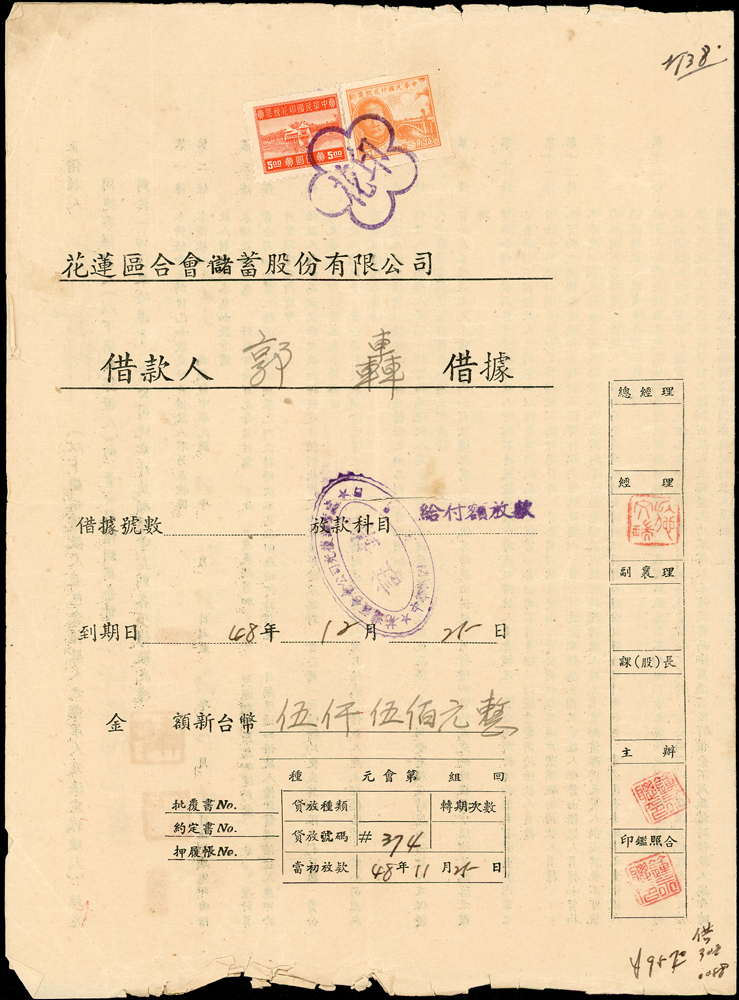 2738.
中華民國印花稅票
5.00 伍圓 5.00
中華民國印花稅票
花蓮區合會儲蓄股份有限公司
借款人 郭 轟 借據
借據號數 放款科目 給付額放款
到期日 48年 12月 25日
金 額新台幣 伍仟伍佰元整
種 元會第 組 回
批覆書No.
約定書No.
押履帳No.
貸放種類 轉期次數
貸放號碼 # 374
當初放款 48年11月25日
總經理
經理
副襄理
課(股)長
主辦
印鑑照合
借